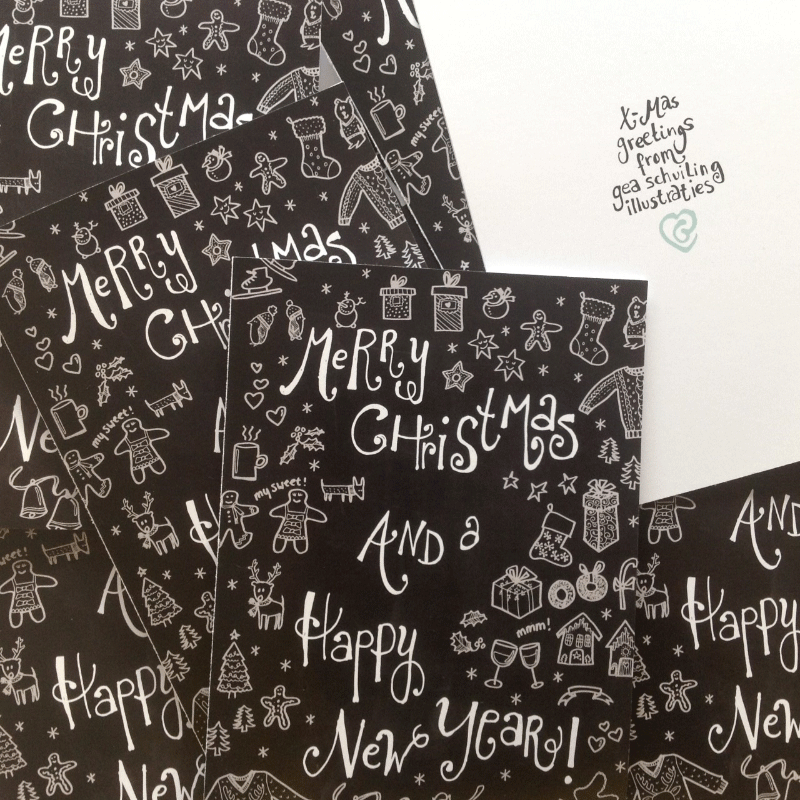 MeRRy
CHristmas
MeRRy
CHristmas
my sweet!
X-Mas
greetings
from
gea schuiling
illustraties
MeRRy
CHristmas
my sweet!
AND a
Happy
mmm!
New YEAR!
my sweet!
Happy
New
AND
Happy
New